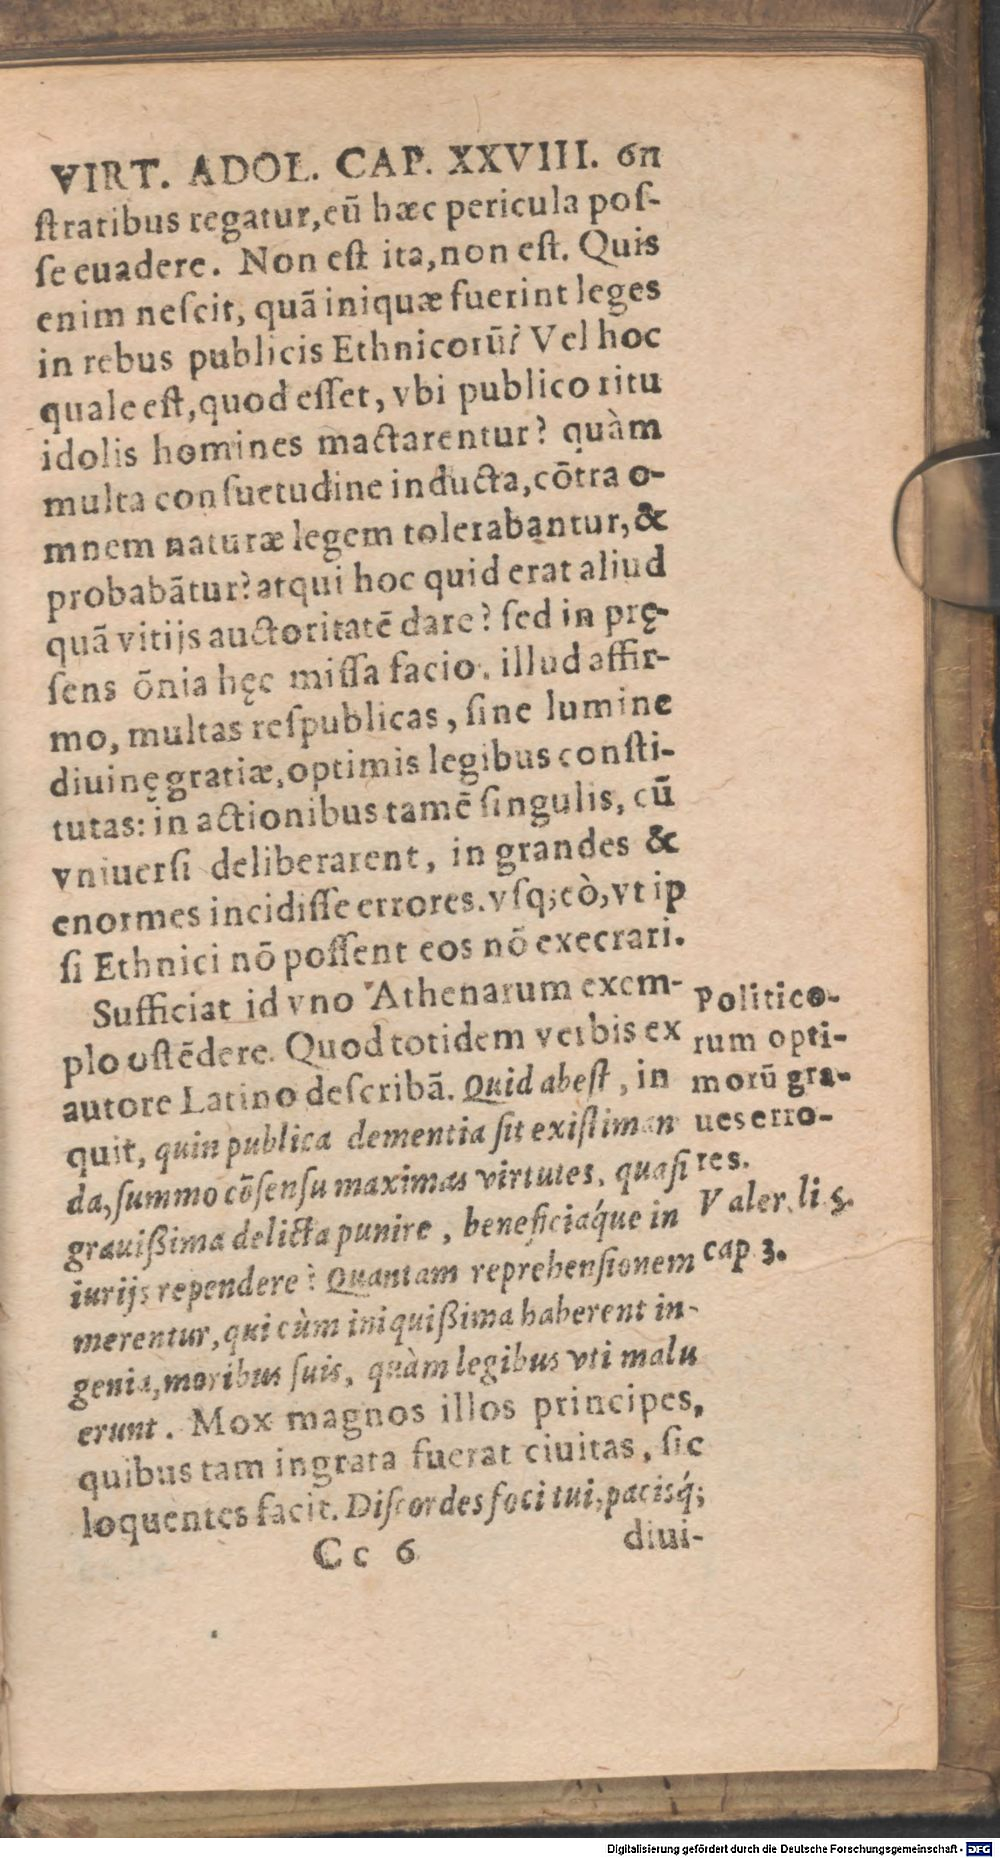 VIRT. ADOL. CAP. XXVIII. 611
ſtratibus regatur, eũ hæc pericula poſ-
ſe euadere. Non eſt ita, non eſt. Quis
enim neſcit, quã iniquæ fuerint leges
in rebus publicis Ethnicorũ? Vel hoc
quale eſt, quod eſſet, vbi publico ritu
idolis homines mactarentur? quàm
multa conſuetudine inducta, cõtra o-
mnem naturæ legem tolerabantur, &
probabãtur? atqui hoc quid erat aliud
quã vitijs auctoritatẽ dare? ſed in prę-
ſens õnia hęc miſſa facio. illud affir-
mo, multas reſpublicas, ſine lumine
diuinę gratiæ, optimis legibus conſti-
tutas: in actionibus tamẽ ſingulis, cũ
vniuerſi deliberarent, in grandes &
enormes incidiſſe errores. vſq; eò, vt ip
ſi Ethnici nõ poſſent eos nõ execrari.
Sufficiat id vno Athenarum exem-
plo oſtẽdere. Quod totidem verbis ex
autore Latino deſcribã. Quid abeſt, in
quit, quin publica dementia ſit exiſtiman
da, ſummo cõſenſu maximas virtutes, quaſi
grauißima delicta punire, beneficiaq́ue in
iurijs rependere? Quantam reprehenſionem
merentur, qui cùm iniquißima haberent in-
genia, moribus ſuis, quàm legibus vti malu
erunt. Mox magnos illos principes,
quibus tam ingrata fuerat ciuitas, ſic
loquentes facit. Diſcordes foci tui, pacisq́;
Cc 6 diui-
Politico-
rum opti-
morũ gra-
ues erro-
res.
Valer. li. 5.
cap. 3.
Digitalisierung gefördert durch die Deutsche Forschungsgemeinschaft - DFG